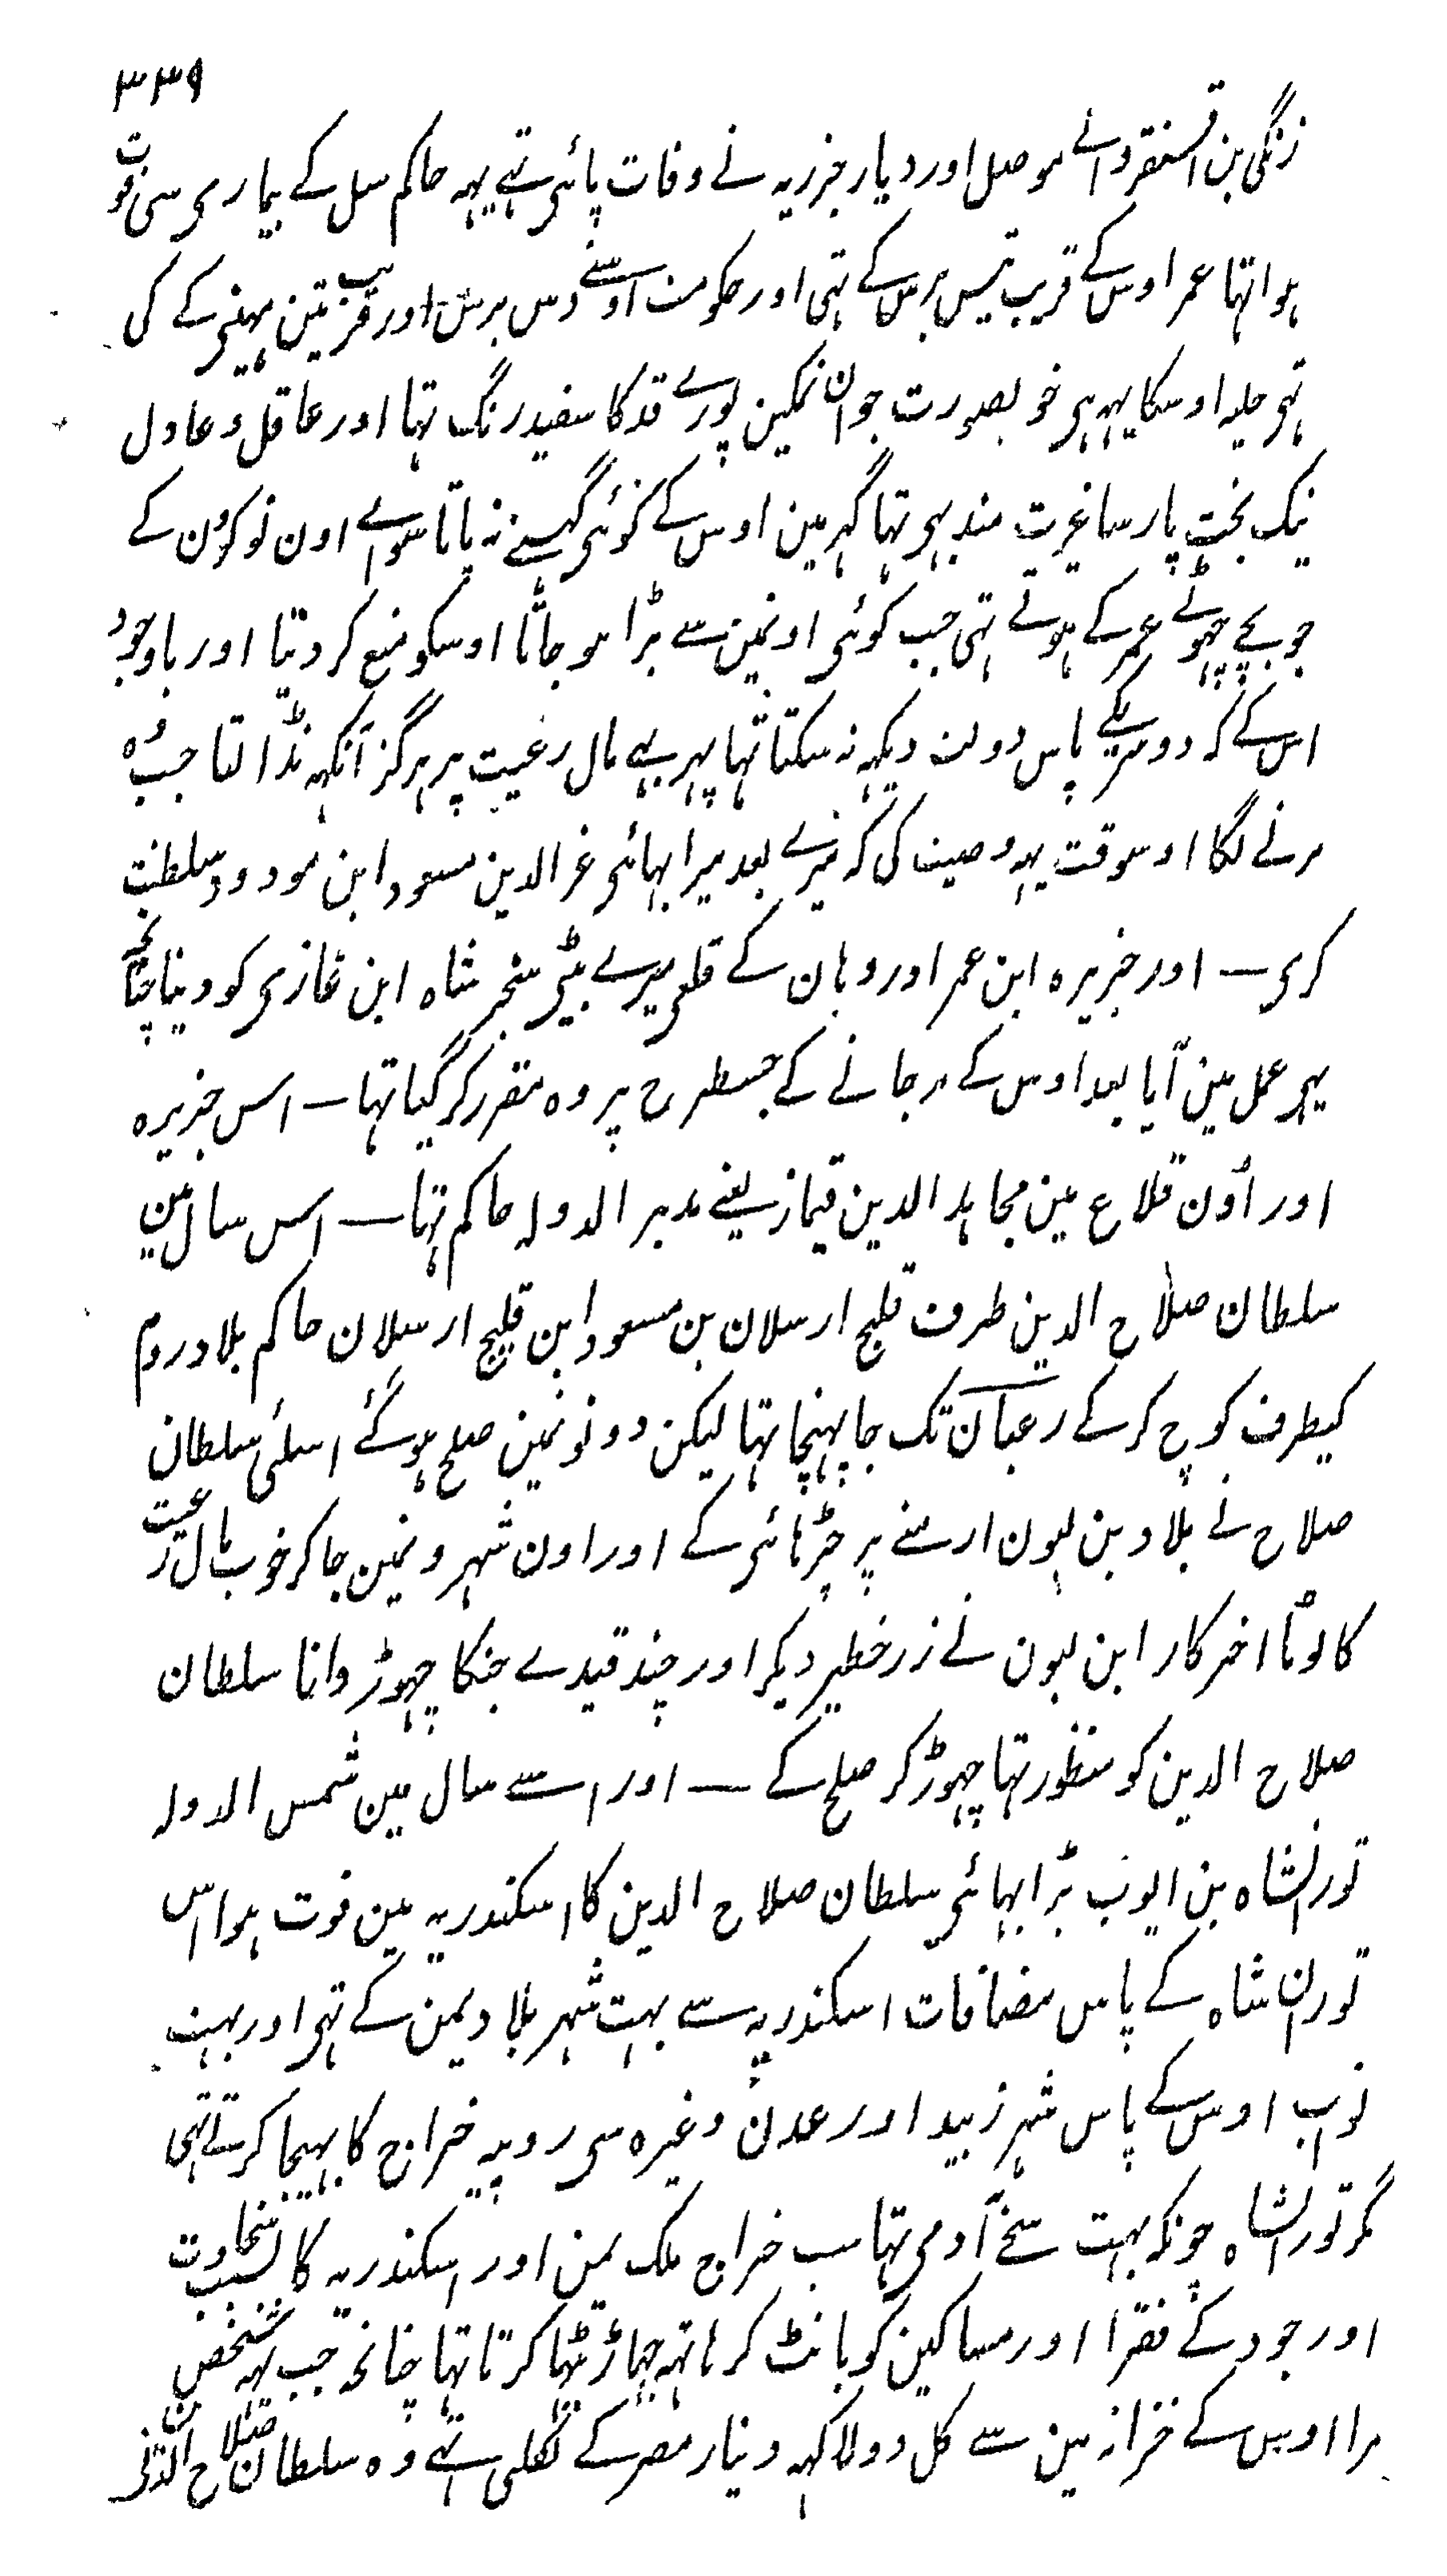 ۳۳۹
زنگی بن اقسنقر والے موصل اور دیار جزریہ نے وفات پائی تہی یہہ حاکم سل کے بیماری سی فوت
ہوا تہا عمر اوس کے قریب تیس برس کے تہی اور حکومت اوسنے دس برس اور قریب تین مہینی کے کی
تہی حلیہ اوسکا یہہ ہی خوبصورت جوان نمکین پورے قد کا سفید رنگ تہا اور عاقل و عادل
نیک بخت پارسا غیرت مند بہی تہا گہر مین اوس کے کوئی گہسنے نہ پاتا سواے اون نوکرون کے
جو بچے چہوٹے عمر کے ہوتے تہی جب کوئی اونمین سے بڑا ہو جاتا اوسکو منع کر دیتا اور باوجود
اس کے کہ دوسریکے پاس دولت دیکہہ نہ سکتا تہا پہر بہے مال رعیت پر ہرگز آنکہہ نڈالتا جب وہ
مرنے لگا اوسوقت یہہ وصیت کی کہ میرے بعد میرا بہائی عز الدین مسعود ابن مودود سلطنت
کری — اور جزیرہ ابن عمر اور وہان کے قلعی میرے بیٹی سنجر شاہ ابن غازی کو دینا چنانچہ
یہی عمل مین آیا بعد اوس کے مر جانے کے جسطرح پر وہ مقرر کر گیا تہا — اس جزیرہ
اور اون قلاع مین مجاہد الدین قیماز یعنے مدبر الدولہ حاکم تہا — اس سال مین
سلطان صلاح الدین طرف قلیج ارسلان بن مسعود ابن قلیج ارسلان حاکم بلاد روم
کیطرف کوچ کر کے رعبان تک جا پہنچا تہا لیکن دونونمین صلح ہو گئے اسلئی سلطان
صلاح نے بلاد بن لیون ارمنے پر چڑہائی کے اور اون شہرونمین جا کر خوب مال رعیت
کا لوٹا اخر کار ابن لیون نے زر خطیر دیکر اور چند قیدے جنکا چہوڑوانا سلطان
صلاح الدین کو منظور تہا چہوڑ کر صلح کے — اور اسے سال مین شمس الدولہ
تورانشاہ بن ایوب بڑا بہائی سلطان صلاح الدین کا اسکندریہ مین فوت ہوا اس
توران شاہ کے پاس مضافات اسکندریہ سے بہت شہر بلاد یمن کے تہی اور بہت
نواب اوس کے پاس شہر زبید اور عدن وغیرہ سی روپیہ خراج کا بہیجا کرتے تہی
مگر تورانشاہ چونکہ بہت سخے آدمی تہا سب خراج ملک یمن اور اسکندریہ کا بسبب سخاوت
اور جود کے فقرا اور مساکین کو بانٹ کر ہاتہہ جہاڑ بیٹہا کرتا تہا چنانچہ جب یہہ شخص
مرا اوس کے خزانہ مین سے کل دو لاکہہ دینار مصر کے نکلی تہے وہ سلطان صلاح الدین نی